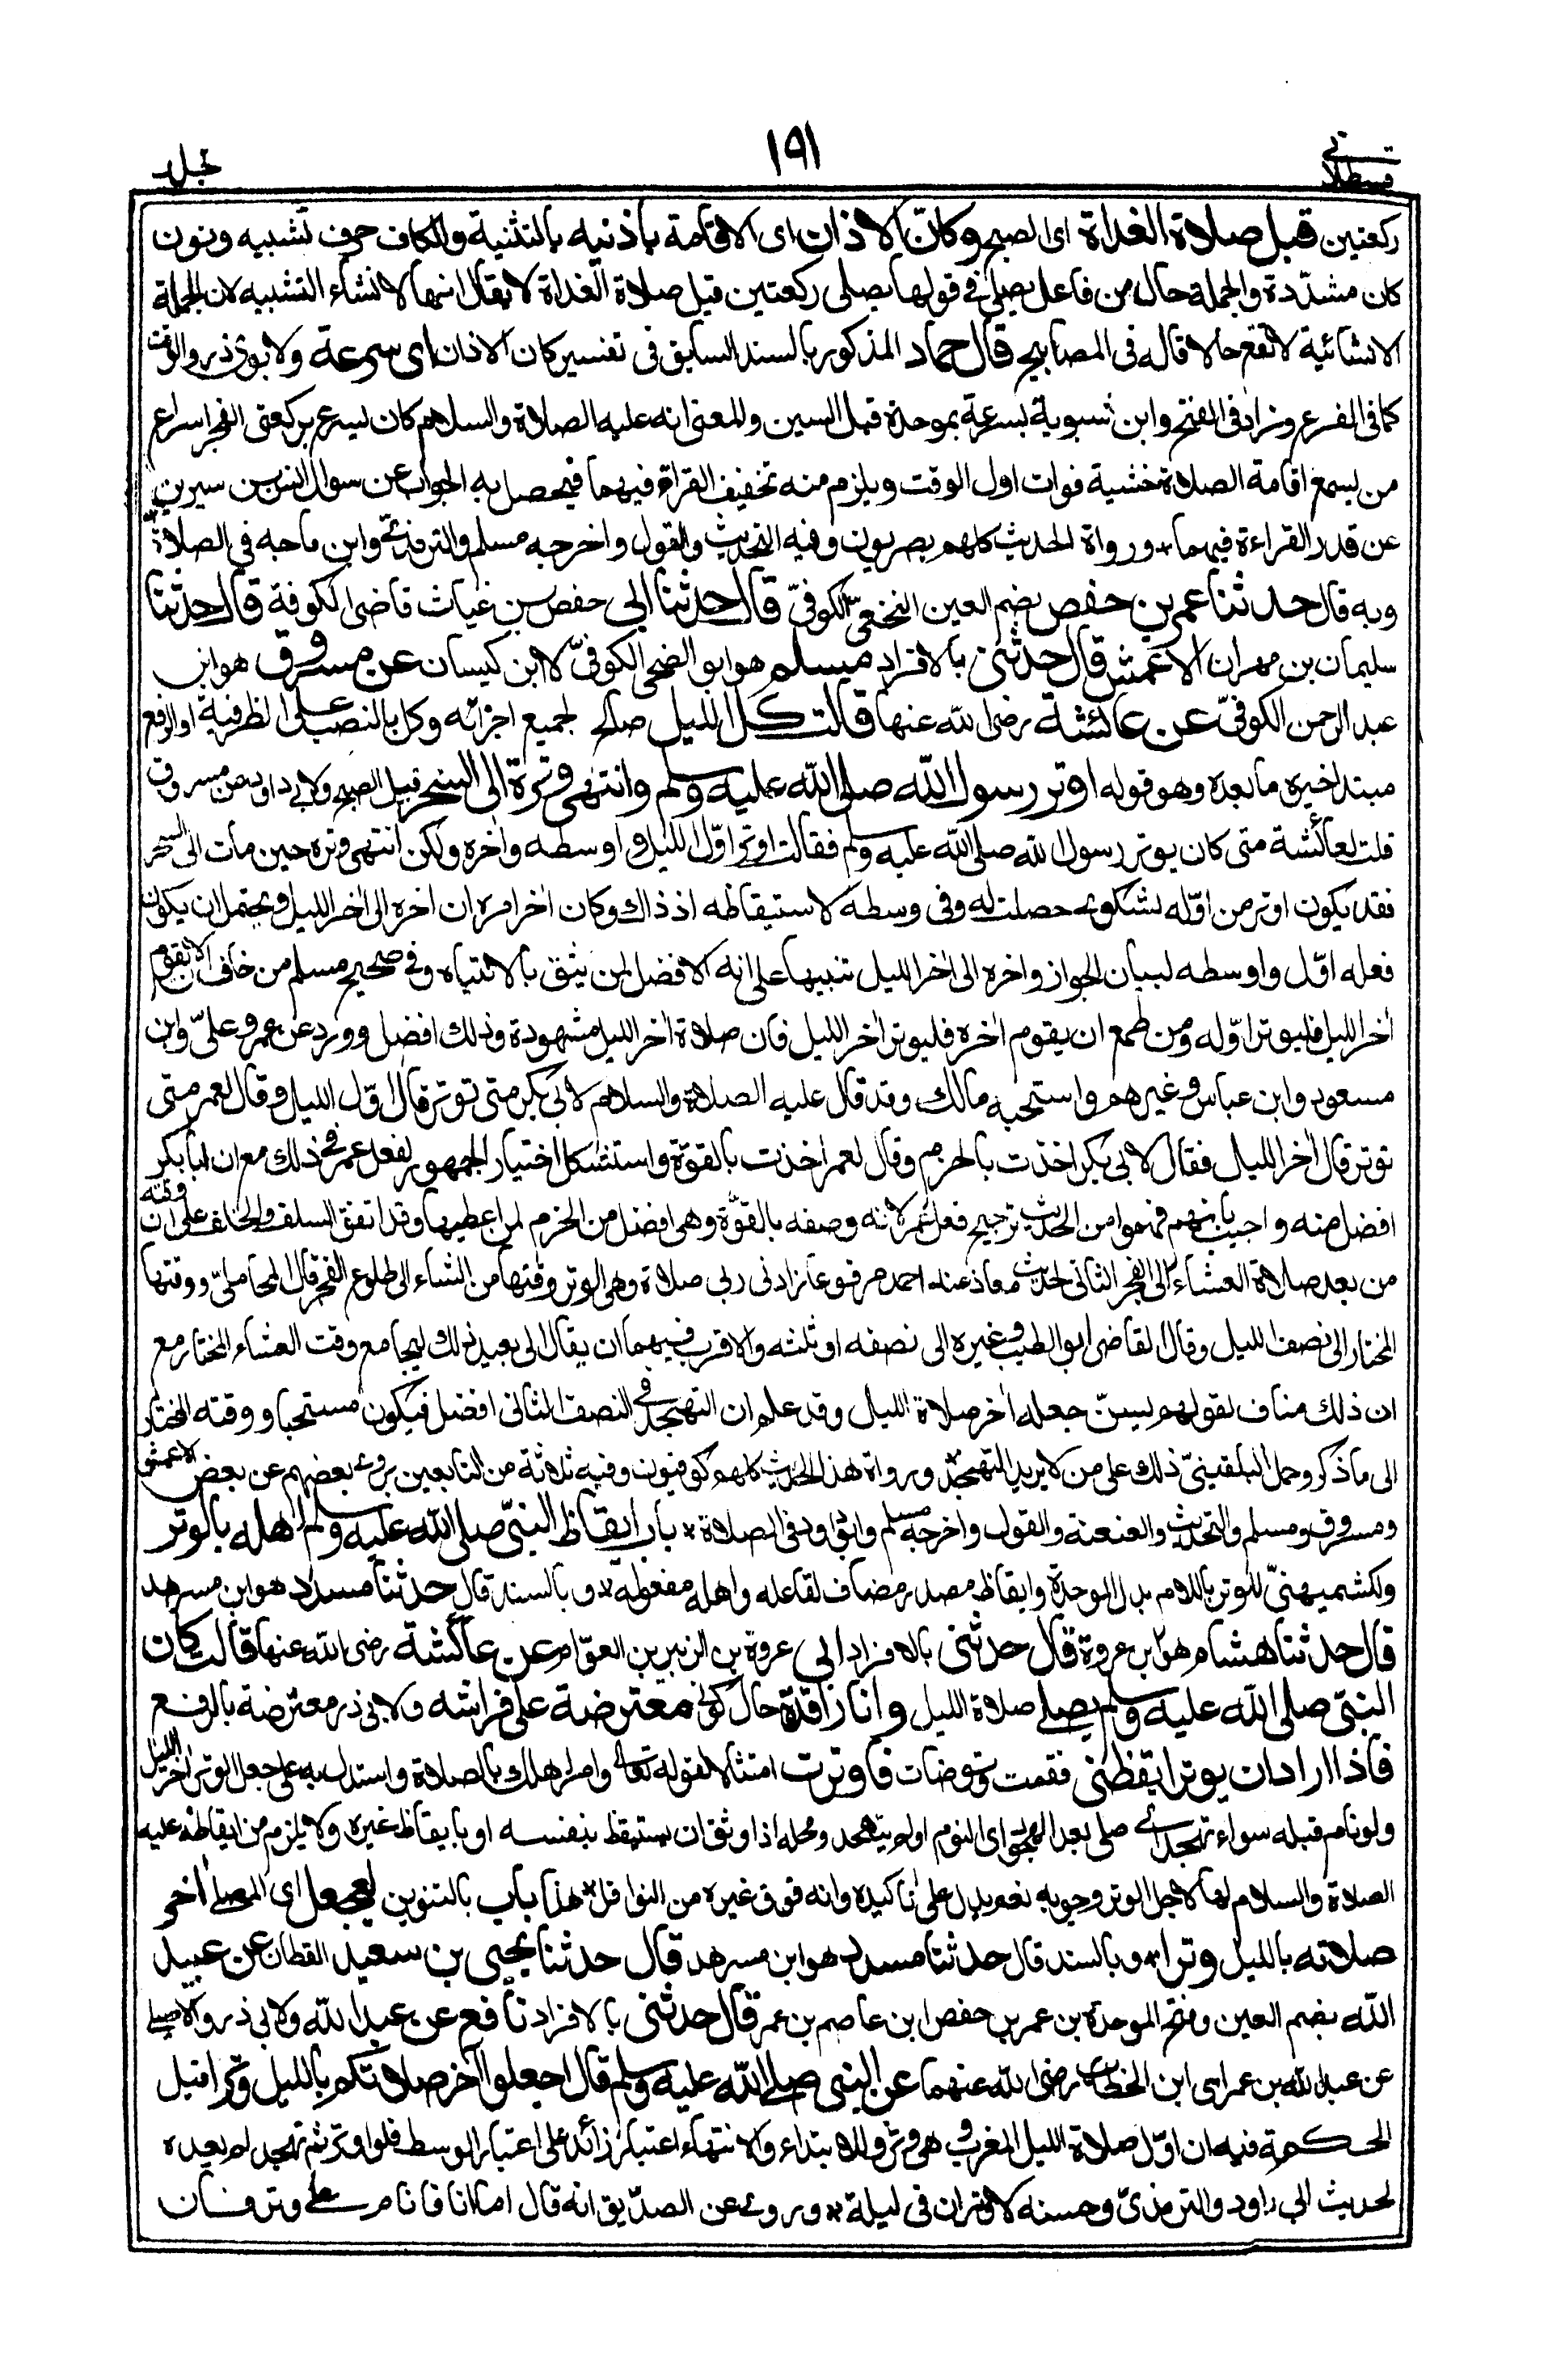 قسطلانی
١٩١
جلد
ركعتين قبل صلاة الغداة اى الصبح وكانّ الاذان اى الاقامة باذنيه بالتثنية والكاف حرف تشبيه ونون
كان مشدّدة والجملة حال من فاعل يصلى فى قولها يصلى ركعتين قبل صلاة الغداة لا يقال انها لانشاء التشبيه لان الجملة
الانشائية لا تقع حالا قاله فى المصابيح قال حماد المذكور بالسند السابق فى تفسير كان الاذان اى سرعة ولابوى ذر والوقت
كما فى الفرع وزاد فى الفتح وابن شبوية بسرعة بموحدة قبل السين والمعنى انه عليه الصلاة والسلام كان يسرع بركعتى الفجر اسراع
من يسمع اقامة الصلاة خشية فوات اول الوقت ويلزم منه تخفيف القراءة فيهما فيحصل به الجواب عن سوال انس بن سيرين
عن قدر القراءة فيهما * ورواة الحديث كلهم بصريون وفيه التحديث والقول واخرجه مسلم والترمذىّ وابن ماجه فى الصلاة
وبه قال حدثنا عمر بن حفص بضم العين النخعى الكوفىّ قال حدثنا ابى حفص بن غياث قاضى الكوفة قال حدثنا
سليمان بن مهران الاعمش قال حدثنى بالافراد مسلم هو ابو الضحى الكوفىّ لا ابن كيسان عن مسروق هو ابن
عبد الرحمن الكوفىّ عن عائشة رضى الله عنها قالت كل الليل صالح لجميع اجزائه وكل بالنصب على الظرفية او الرفع
مبتدا خبره ما بعده وهو قوله اوتر رسول الله صلى الله عليه وسلم وانتهى وتره الى السحر قبيل الصبح ولابى داود عن مسروق
قلت لعائشة متى كان يوتر رسول الله صلى الله عليه وسلم فقالت اوتر اوّل الليل واوسطه واخره ولكن انتهى وتره حين مات الى السحر
فقد يكون اوتر من اوّله لشكوى حصلت له وفى وسطه لاستيقاظه اذ ذاك وكان اخر امره ان اخره الى اخر الليل ويحتمل ان يكون
فعله اوّل واوسطه لبيان الجواز واخره الى اخر الليل تنبيها على انه الافضل لمن يثق بالانتباه وفى صحيح مسلم من خاف ان لا يقوم
اخر الليل فليوتر اوّله ومن طمع ان يقوم اخره فليوتر اخر الليل فان صلاة اخر الليل مشهودة وذلك افضل وورد عن عمر وعلىّ وابن
مسعود وابن عباس وغيرهم واستحبه مالك وقد قال عليه الصلاة والسلام لابى بكر متى توتر قال اوّل الليل وقال لعمر متى
توتر قال اخر الليل فقال لابى بكر اخذت بالحزم وقال لعمر اخذت بالقوّة واستشكل اختيار الجمهور لفعل عمر فى ذلك مع ان ابا بكر
افضل منه واجيب بانهم فهموا من الحديث ترجيح فعل عمر لانه وصفه بالقوّة وهى افضل من الحزم لمن اعطيها وقد اتفق السلف والخلف على ان وقته
من بعد صلاة العشاء الى الفجر الثانى لحديث معاذ عند احمد مرفوعا زادنى ربى صلاة وهى الوتر وقتها من العشاء الى طلوع الفجر قال المحاملىّ ووقتها
المختار الى نصف الليل وقال القاضى ابو الطيب وغيره الى نصفه او ثلثه والاقرب فيهما ان يقال الى بعيد ذلك ليجامع وقت العشاء المختار مع
ان ذلك مناف لقولهم يسنّ جعله اخر صلاة الليل وقد علم ان التهجد فى النصف الثانى افضل فيكون مستحبا ووقته المختار
الى ما ذكر وحمل البلقينىّ ذلك على من لا يريد التهجد * ورواة هذا الحديث كلهم كوفيون وفيه ثلاثة من التابعين يروى بعضهم عن بعض الاعمش
ومسروق ومسلم والتحديث والعنعنة والقول واخرجه مسلم وابو داود فى الصلاة * باب ايقاظ النبىّ صلى الله عليه وسلم اهله بالوتر
ولكشميهنىّ للوتر باللام بدل الموحدة وايقاظ مصدر مضاف لفاعله واهله مفعوله * وبالسند قال حدثنا مسدد هو ابن مسرهد
قال حدثنا هشام هو ابن عروة قال حدثنى بالافراد ابى عروة بن الزبير بن العوّام عن عائشة رضى الله عنها قالت كان
النبىّ صلى الله عليه وسلم يصلى صلاة الليل وانا راقدة حال كونى معترضة على فراشه ولابى ذر معترضة بالرفع
فاذا اراد ان يوتر ايقظنى فقمت وتوضات فاوترت امتثالا لقوله تعالى وامر اهلك بالصلاة واستدل به على جعل الوتر اخر الليل
ولو نام قبله سواء تهجد اى صلى بعد الهجود اى النوم او لم يتهجد ومحله اذا وثق ان يستيقظ بنفسه او بايقاظ غيره ولا يلزم من ايقاظه عليه
الصلاة والسلام لها لاجل الوتر وجوبه نعم يدل على تاكيده وانه فوق غيره من النوافل * هذا باب بالتنوين ليجعل اى المصلى اخر
صلاته بالليل وترا * وبالسند قال حدثنا مسدد هو ابن مسرهد قال حدثنا يحيى بن سعيد القطان عن عبيد
الله بضم العين وفتح الموحدة بن عمر بن حفص ابن عاصم بن عمر قال حدثنى بالافراد نافع عن عبد الله ولابى ذر والاصيلى
عن عبد الله بن عمر اى ابن الخطاب رضى الله عنهما عن النبى صلى الله عليه وسلم قال اجعلوا آخر صلاتكم بالليل وترا قيل
الحكمة فيه ان اوّل صلاة الليل المغرب وهى وتر وللابتداء والانتهاء اعتبار زائد على اعتبار الوسط فلو اوتر ثم تهجد لم يعده
لحديث ابى داود والترمذىّ وحسنه لا وتران فى ليلة * وروى عن الصدّيق انه قال اما انا فانام على وتر فان